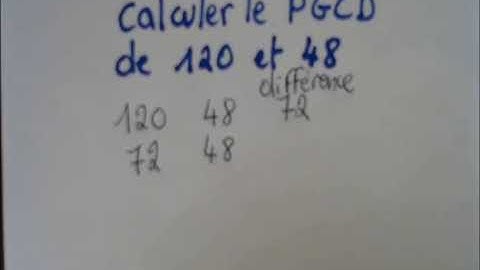 Calculer le PGCD
de 120 et 48
différence
120 48 72
72 48